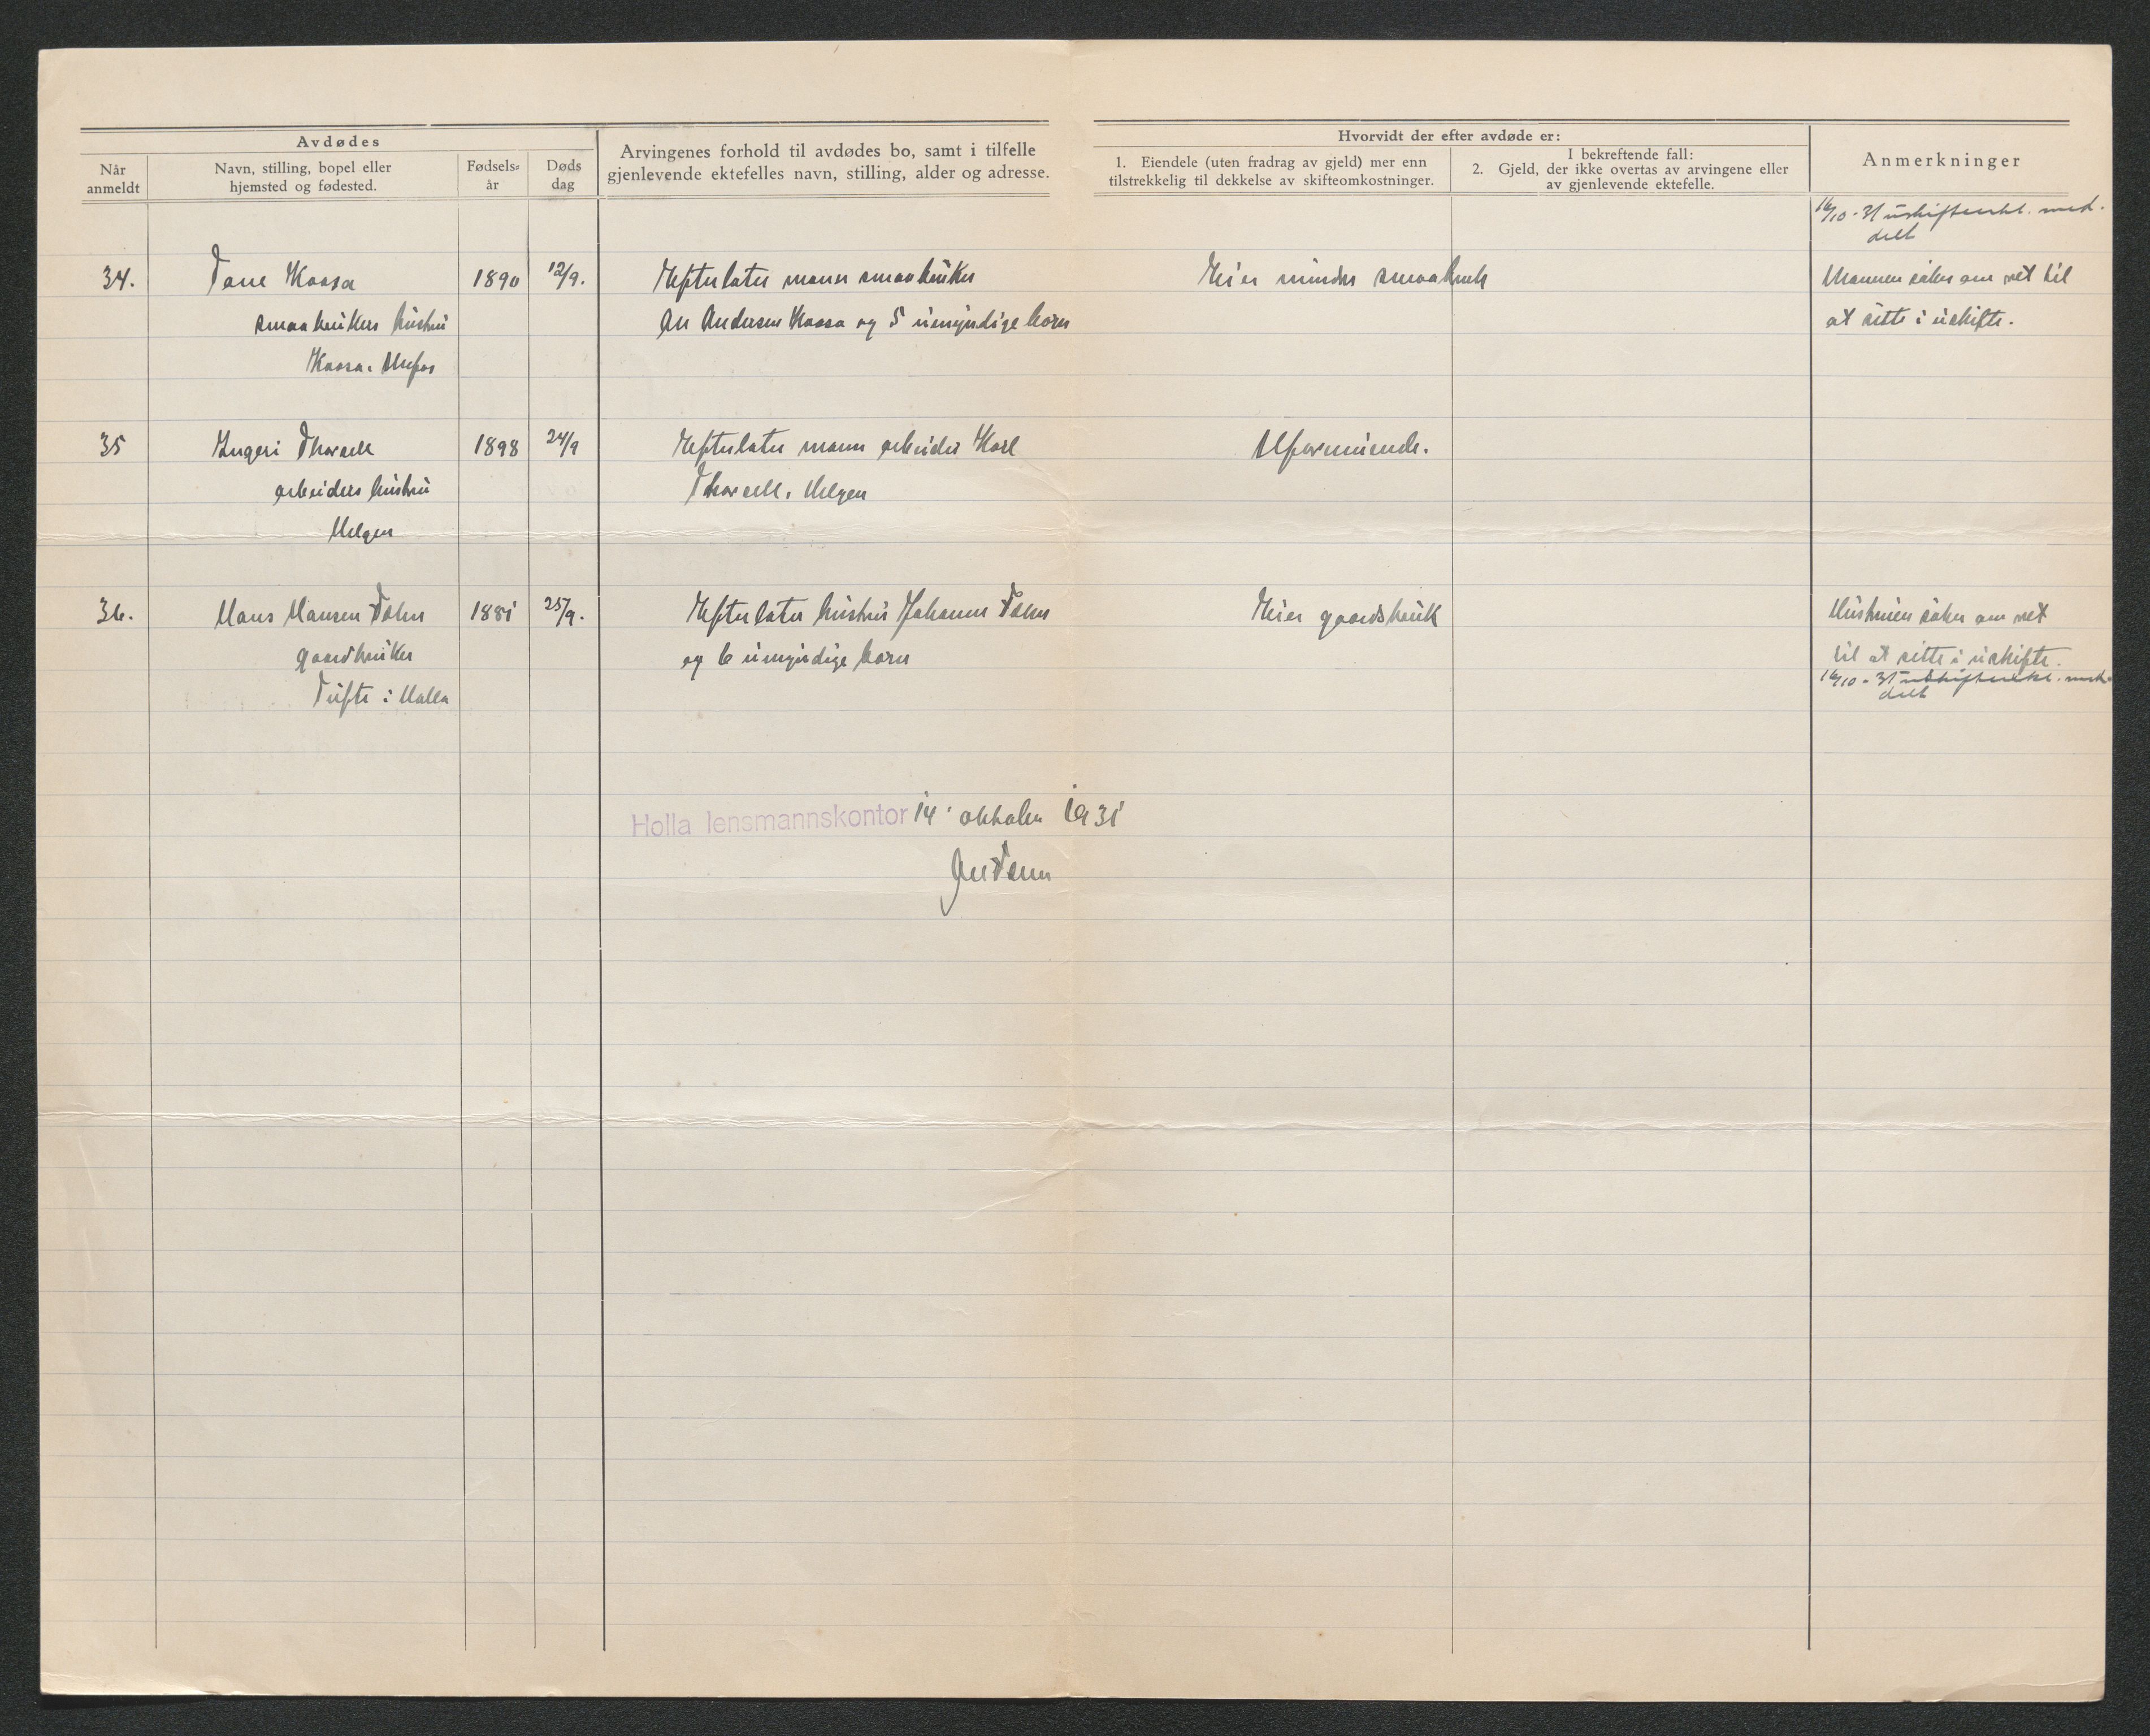 Avdødes
Når anmeldt
Navn, stilling, bopel eller hjemsted og fødested.
Fødsels-år
Døds dag
Arvingenes forhold til avdødes bo, samt i tilfelle gjenlevende ektefelles navn, stilling, alder og adresse.
Hvorvidt der efter avdøde er:
1. Eiendele (uten fradrag av gjeld) mer enn tilstrekkelig til dekkelse av skifteomkostninger.
I bekreftende fall:
2. Gjeld, der ikke overtas av arvingene eller av gjenlevende ektefelle.
Anmerkninger
16/10-31 uskifteatt. med-
delt
34. Tone Kaasa 1890 12/9. Efterlater mann smaabruker Eier mindre smaabruk Mannen søker om ret til
smaabrukers hustru Andersen Kaasa og 5 umyndige barn at sitte i uskifte.
Kaasa. Ulefos
35 Ingeri Thorsell 1898 24/9 Efterlater mann arbeider Karl Uformuende.
arbeiders hustru Thorsell. Helgen
Helgen
36. Hans Hansen Dolva 1881 25/9. Efterlater hustru Johanne Dolva Eier gaardsbruk Hustruen søker om ret
gaardbruker og 6 umyndige barn til at sitte i uskifte.
Tufte i Holla 16/10-31 uskifteatt. med-
delt
Holla lensmannskontor 14' oktober 1931